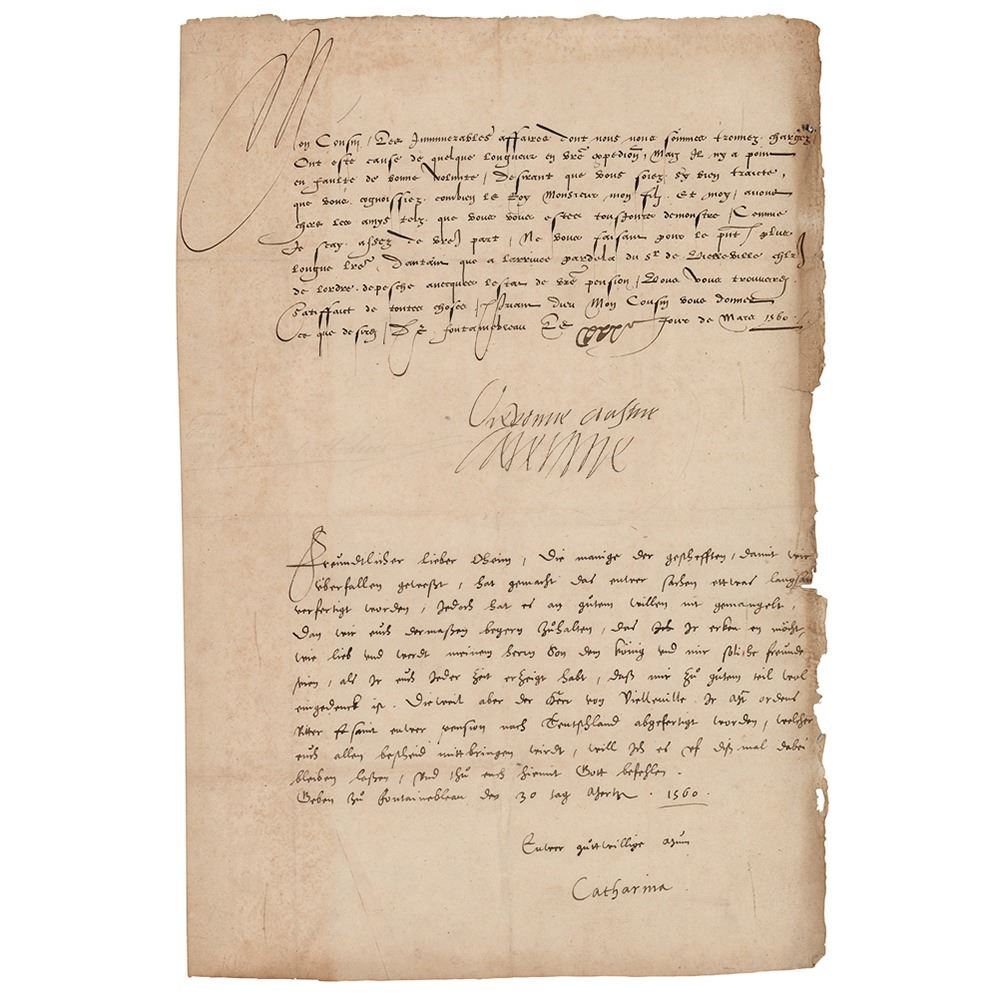 Mon Cousin, Les Innumerables affaires dont nous nous sommes trouvez chargez
Ont esté cause de quelque longueur en vre expedion, Mais Il ny a point
eu faulte de bonne volunté, desirant que vous soiez sy bien traicté,
que vous cognoissiez combien le Roy Monsieur mon filz Et moy, avons
chers les amys telz que vous vous estes tousjours demonstré, Comme
Je scay assez de vre part, Ne vous faisant pour le pnt plus
longue lre, Dautant que a larrivee pardela du Sr de Vieilleville chlr
de lordre depesche avecques lestat de vre pension, Vous vous trouverez
Satisfaict de toutes choses, Priant dieu Mon Cousin vous donner
Ce que desirez, De fontainebleau Le Jour de Mars 1560.
Vre bonne
Caterine
Freundtlicher lieber Oheim, Die manige der geschefften, damit wir
uberfallen geweßt, hat gemacht das euwer sachen ettwas langsam
verfertigt worden, Jedoch hat es an gutem willen nit gemangelt,
Dan wir euch dermaßen begern zuhalten, das Ir erkennen möcht,
wie lieb und werdt meinem herrn Son dem König und mir soliche freunde
seien, als Ir euch Jeder Zeit erzeigt habt, daß mir zu gutem teil wol
eingedenck ist. Dieweil aber der Herr von Vielleville Ir ordens
Ritter sampt euwer pension nach Teutschland abgefertigt worden, welcher
euch allen bescheid mittbringen wirdt, will Ich es uf diß mal dabei
bleiben laßen, Und thu euch hiemit Gott befehlen.
Geben zu fontainebleau den 30 tag Mertz. 1560.
Euwer guttwillige Mum
Catharina